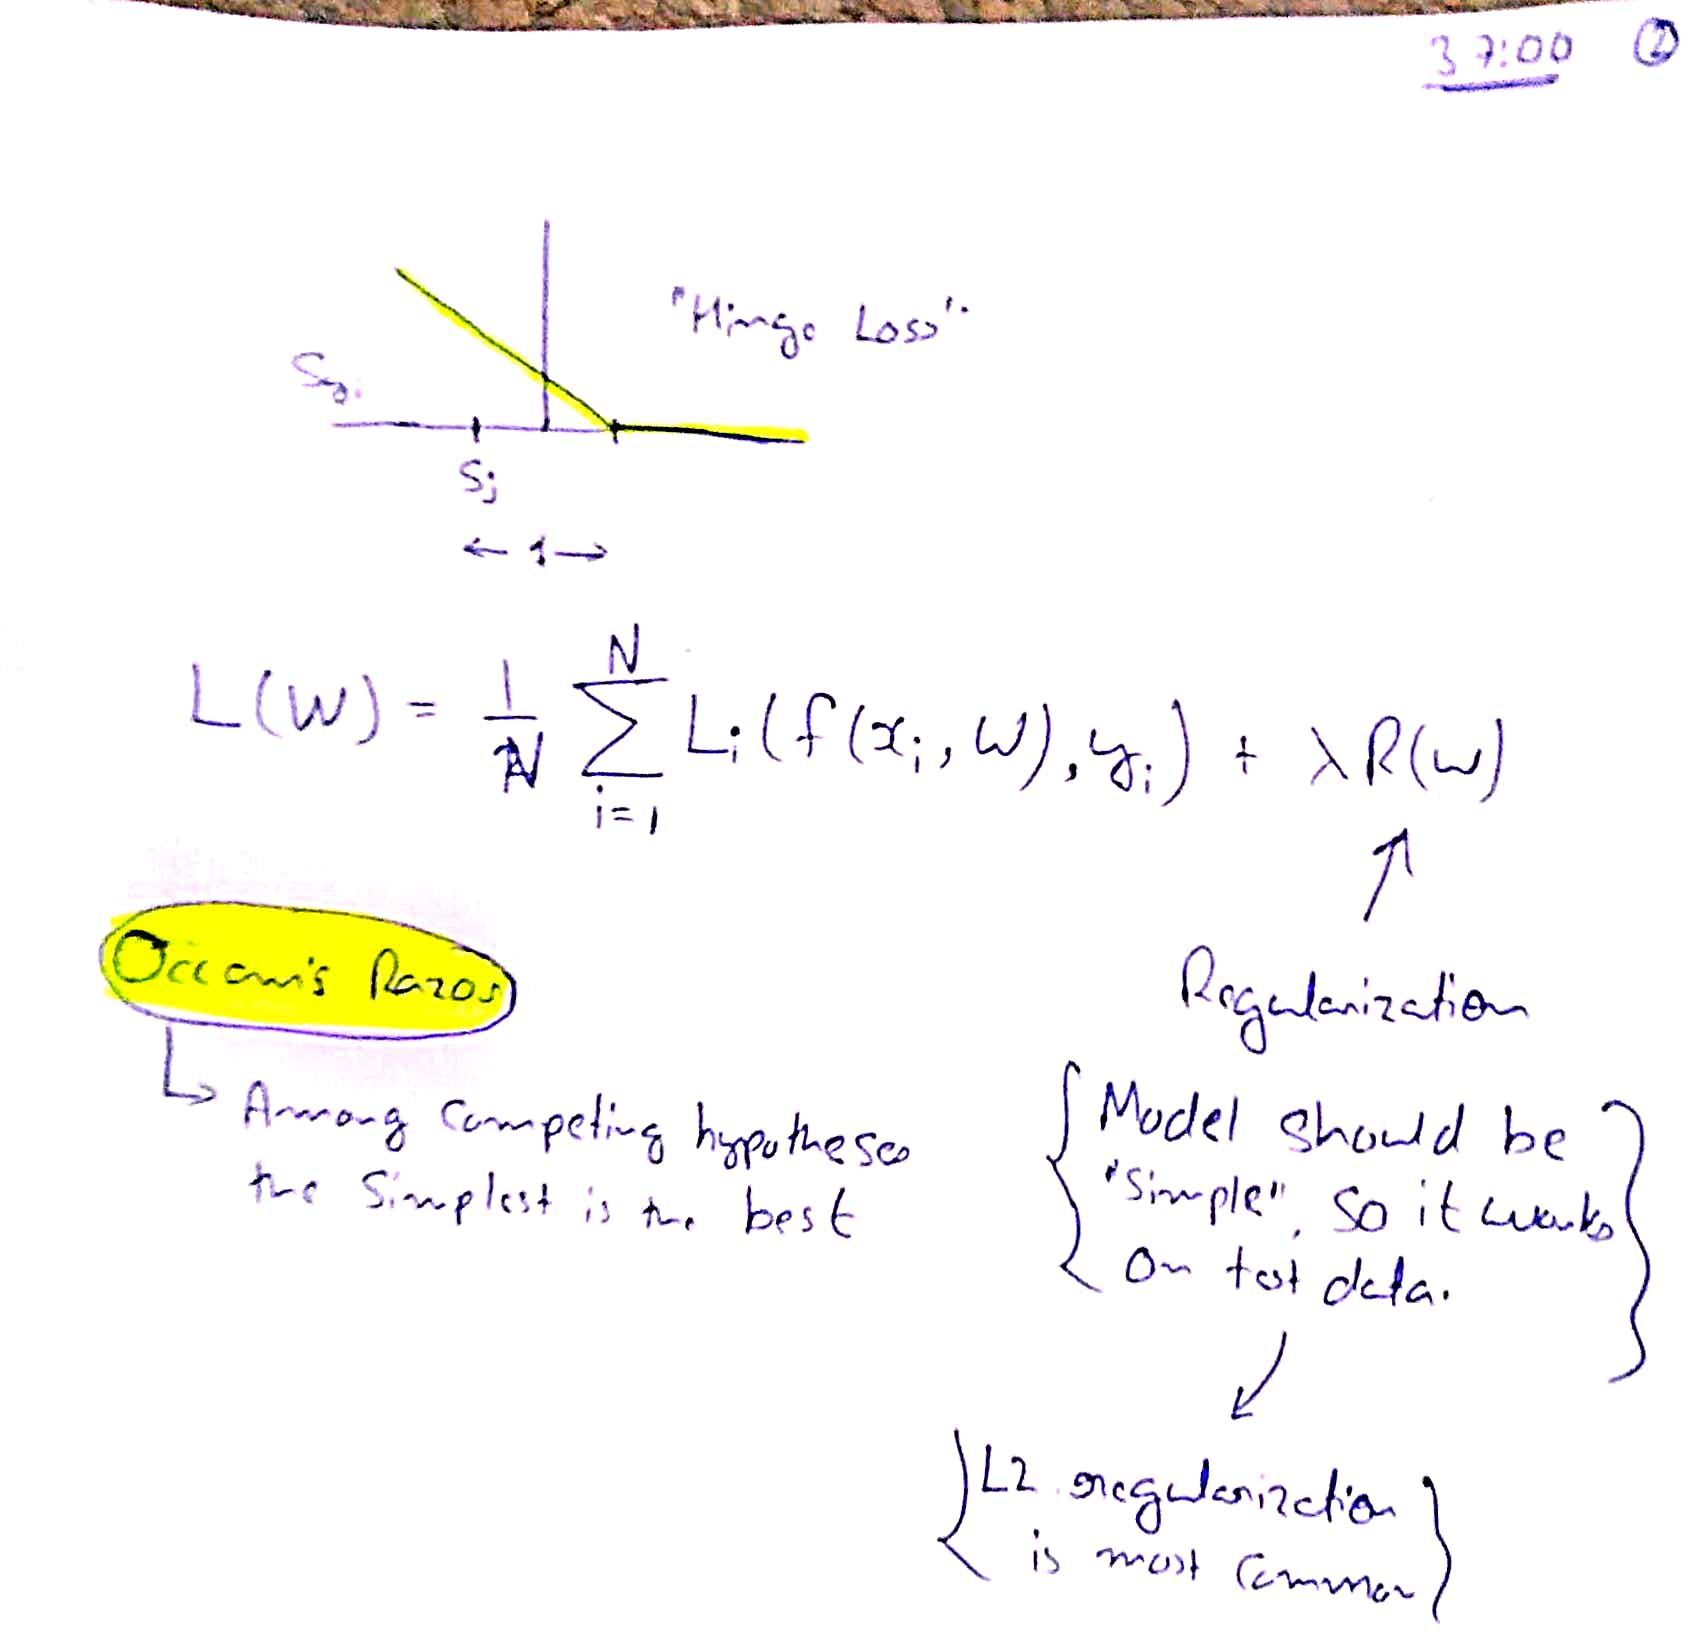 37:00 2
"Hinge Loss"
S_{y_i}
S_j
← 1 →
L(W) = \frac{1}{N} \sum_{i=1}^{N} L_i(f(x_i, W), y_i) + λR(W)
Occam's Razor
↳ Among competing hypotheses
the simplest is the best
Regularization
{ Model should be
"simple", so it works
on test data. }
{ L2 regularization
is most common }